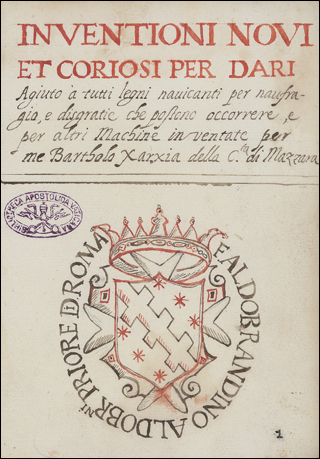 INVENTIONI NOVI
ET CORIOSI PER DARI
Agiuto à tutti legni nauicanti per naufra-
gio, e disgratie che postono occorrere, e
per altri Machine inventate per
me Bartholo Xarxia della C.ta di Mazzara
BIBLIOTHECA APOSTOLICA VATICANA
F ALDOBRANDINO ALDOBRni PRIORE D ROMA
1